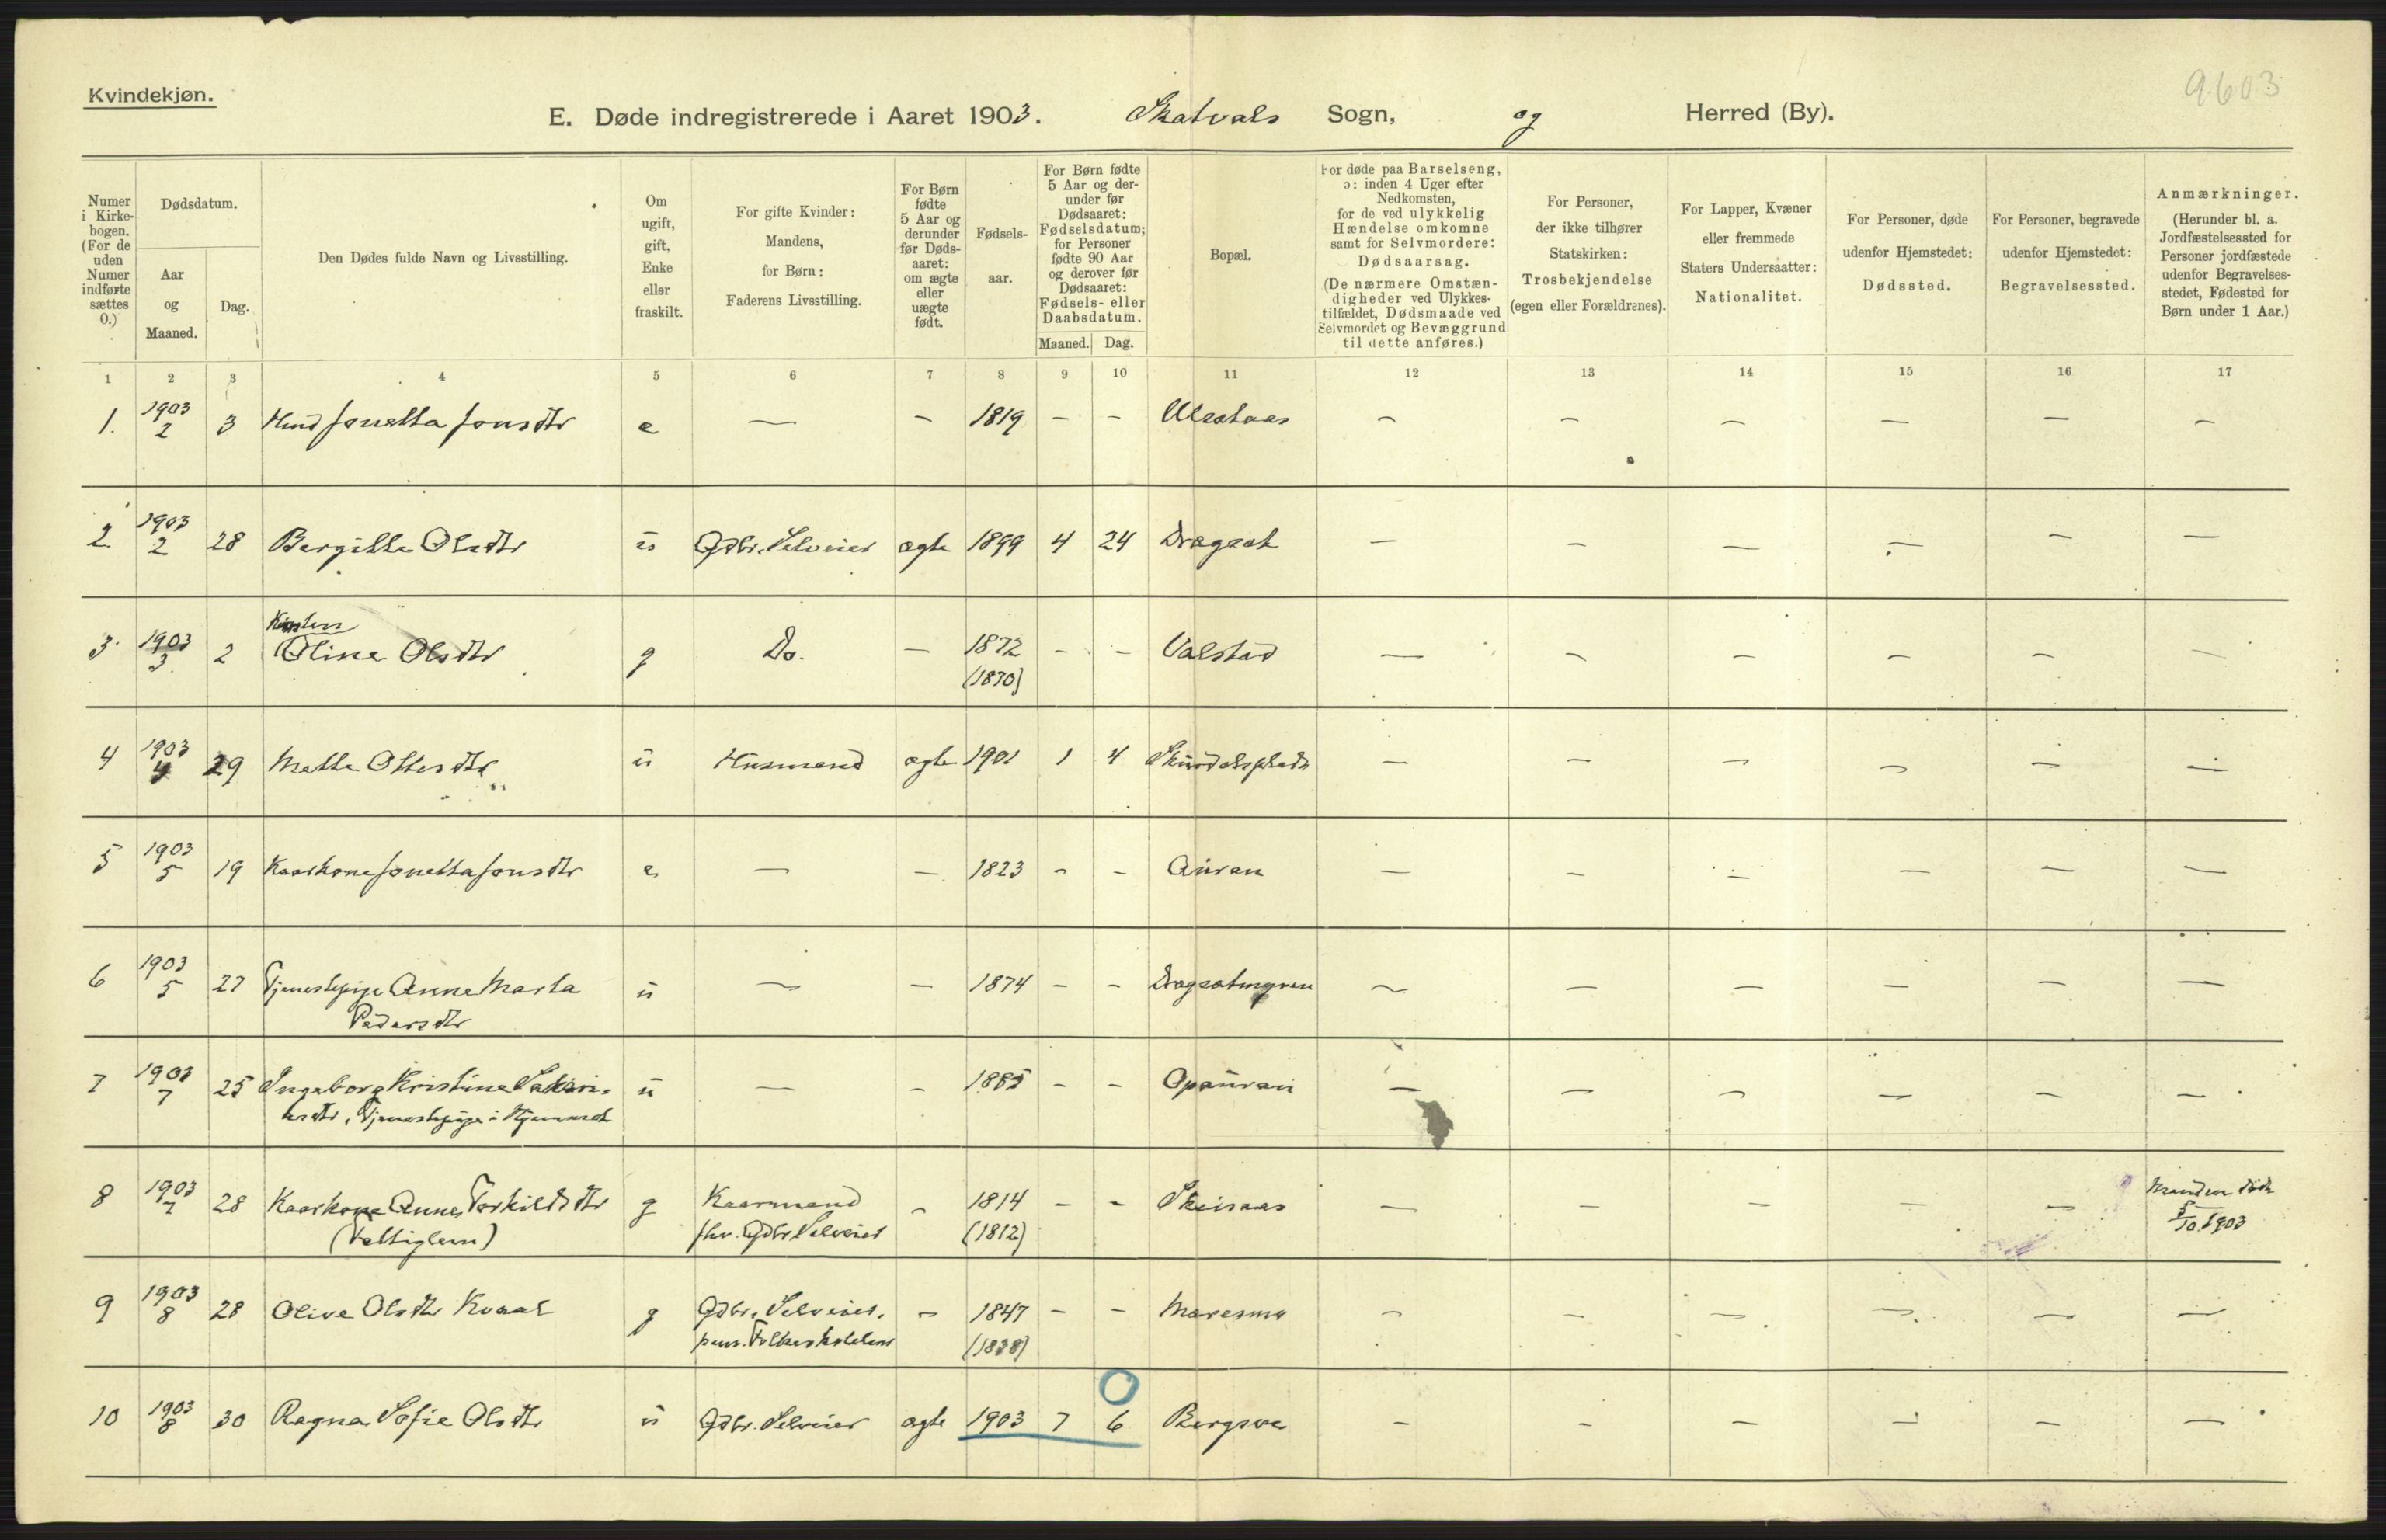 Kvindekjøn.
9603
E. Døde indregistrerede i Aaret 1903. Skatvals Sogn, og Herred (By).
Numer i Kirkebogen. (For de uden Numer indførte sættes 0.)
Dødsdatum.
Aar og Maaned.
Dag.
Den Dødes fulde Navn og Livsstilling.
Om ugift, gift, Enke eller fraskilt.
For gifte Kvinder: Mandens, for Børn: Faderens Livsstilling.
For Børn fødte 5 Aar og derunder før Døds-aaret: om ægte eller uægte født.
Fødsels-aar.
For Børn fødte 5 Aar og der-under før Dødsaaret: Fødselsdatum; for Personer fødte 90 Aar og derover før Dødsaaret: Fødsels- eller Daabsdatum.
Maaned. Dag.
Bopæl.
For døde paa Barselseng, ɔ: inden 4 Uger efter Nedkomsten, for de ved ulykkelig Hændelse omkomne samt for Selvmordere: Dødsaarsag. (De nærmere Omstæn-digheder ved Ulykkes-tilfældet, Dødsmaade ved Selvmordet og Bevæggrund til dette anføres.)
For Personer, der ikke tilhører Statskirken: Trosbekjendelse (egen eller Forældrenes).
For Lapper, Kvæner eller fremmede Staters Undersaatter: Nationalitet.
For Personer, døde udenfor Hjemstedet: Dødssted.
For Personer, begravede udenfor Hjemstedet: Begravelsessted.
Anmærkninger. (Herunder bl. a. Jordfæstelsessted for Personer jordfæstede udenfor Begravelses-stedet, Fødested for Børn under 1 Aar.)
1 2 3 4 5 6 7 8 9 10 11 12 13 14 15 16 17
1. 1903 2 3 Jonetta Jonsdtr e — — 1819 — — — — — — — —
2 1903 2 28 Bergitte Olsdtr u Gdbr. Selveier ægte 1899 4 24 Dragset — — — — — —
Kirsten
3 1903 3 2 Oline Olsdtr g Do. — 1872 — — Valstad — — — — — —
(1870)
4 1903 4 29 Mette Ottersdtr u Husmand ægte 1901 1 4 Skurdalsplads — — — — — —
5 1903 5 19 Kaarkone Jonetta Jonsdtr e — — 1823 — — Auran — — — — — —
6 1903 5 27 Tjenestepige Anne Marta u — — 1874 — — Dragsetmyren — — — — — —
Pedersdtr
7 1903 7 25 Ingeborg Kristine u — — 1885 — — Opauran — — — — — —
Tjenestepige i Hjemmet
8 1903 7 28 Kaarkone Anne Torkildsdtr g Kaarmand — 1814 — — Skeisaas — — — — — Manden døde
fhv. Gdbr. Selveier (1812) 5/10 1903
9 1903 8 28 Olive Olsdtr Kvaal g Gdbr. Selveier, — 1847 — — — — — — — —
pens. Folkeskolelærer (1838)
10 1903 8 30 Ragna Sofie Olsdtr u Gdbr. Selveier ægte 1903 7 6 — — — — — —